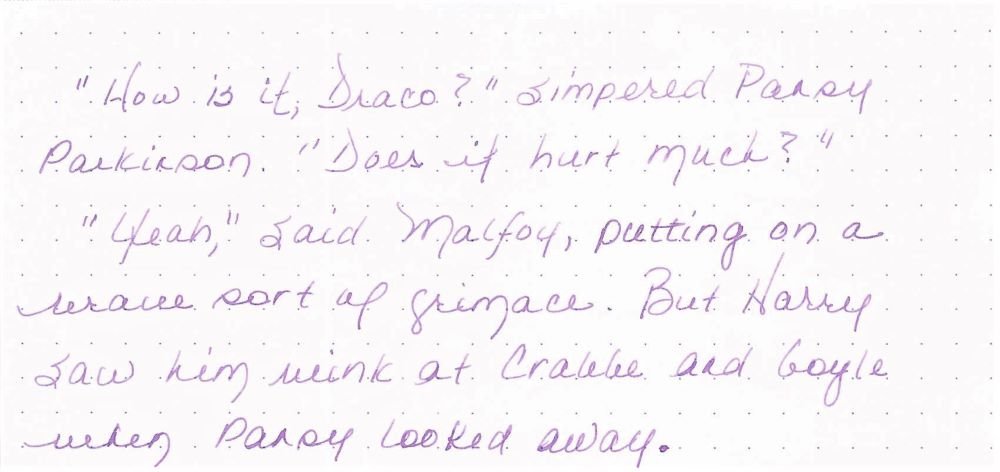 "How is it, Draco?" simpered Pansy
Parkinson. "Does it hurt much?"
"Yeah," said Malfoy, putting on a
brave sort of grimace. But Harry
saw him wink at Crabbe and Goyle
when Pansy looked away.